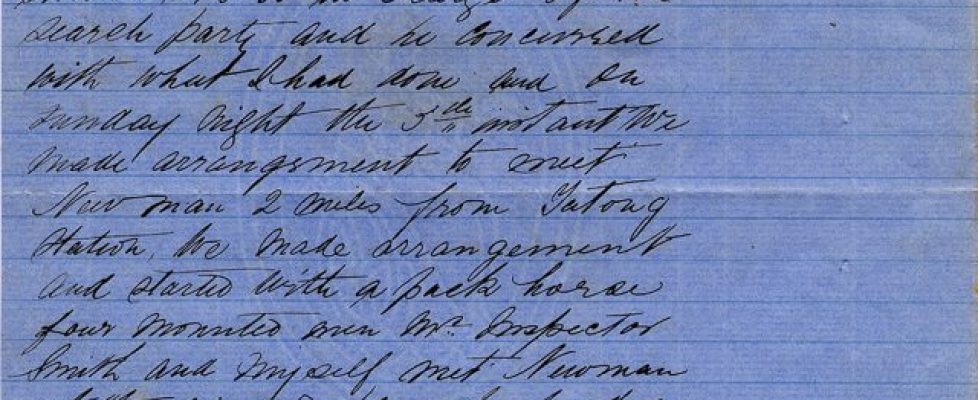 search party and he concurred
with what I had done and on
Sunday night the 5th instant We
made arrangement to meet
Newman 2 miles from Tatong
Station, We made arrangement
and started with a pack horse
four mounted men Mr. Inspector
Smith and Myself met Newman